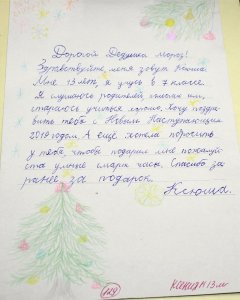 Дорогой Дедушка Мороз!
Здравствуйте, меня зовут Ксюша.
Мне 13 лет, я учусь в 7 классе.
Я слушаюсь родителей помогаю им,
стараюсь учиться хорошо. Хочу поздра
вить тебя с Новым Наступающим
2019 годом. А ещё хотела попросить
у тебя, чтобы подарил мне пожалуй
ста умные смарт часы. Спасибо за
ранее за подарок.
Ксюша.
124
Ксюша 13 л